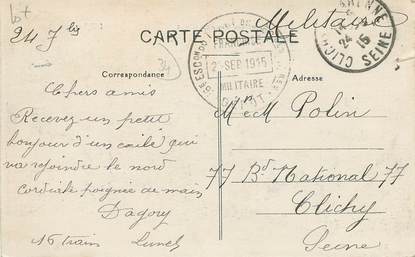 24 7bre
Militaire
CARTE POSTALE
FRANÇAISE
2 SEP 1915
MILITAIRE
CLICHY
24
15
SEINE
Correspondance
Adresse
Chers amis
Recevez un petit
bonjour d'un
qui
va rejoindre le nord
cordiale poignée de main
Dagory
16 train Lunel
M et Me Polin
77 Bd National 77
Clichy
Seine